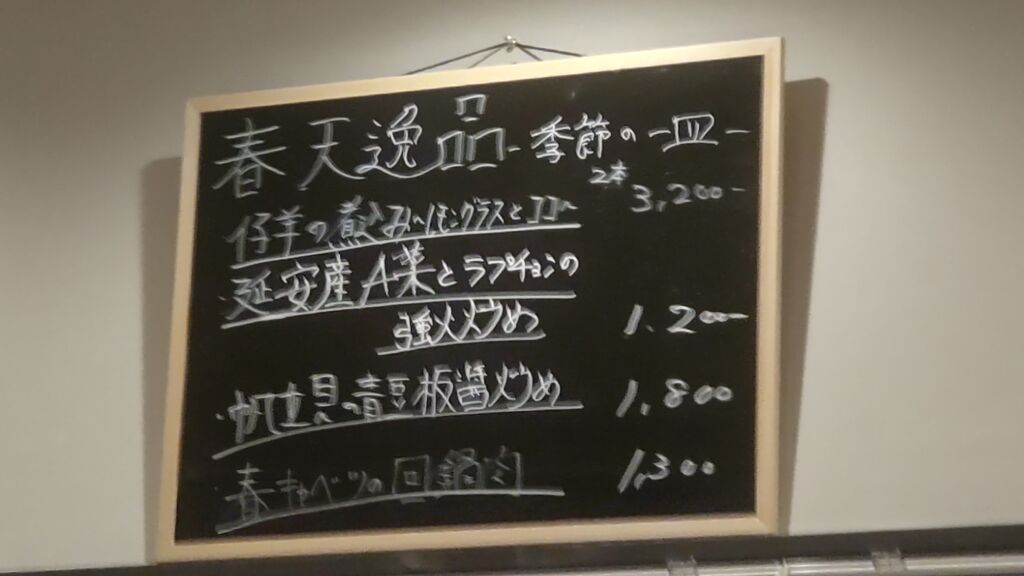 春天逸品 季節の一皿一
仔羊の煮込み 2本 3,200-
延安産A菜とラプチョンの
強火炒め 1.200-
帆立貝の青豆板醤炒め 1,800
春キャベツの回鍋肉 1,300